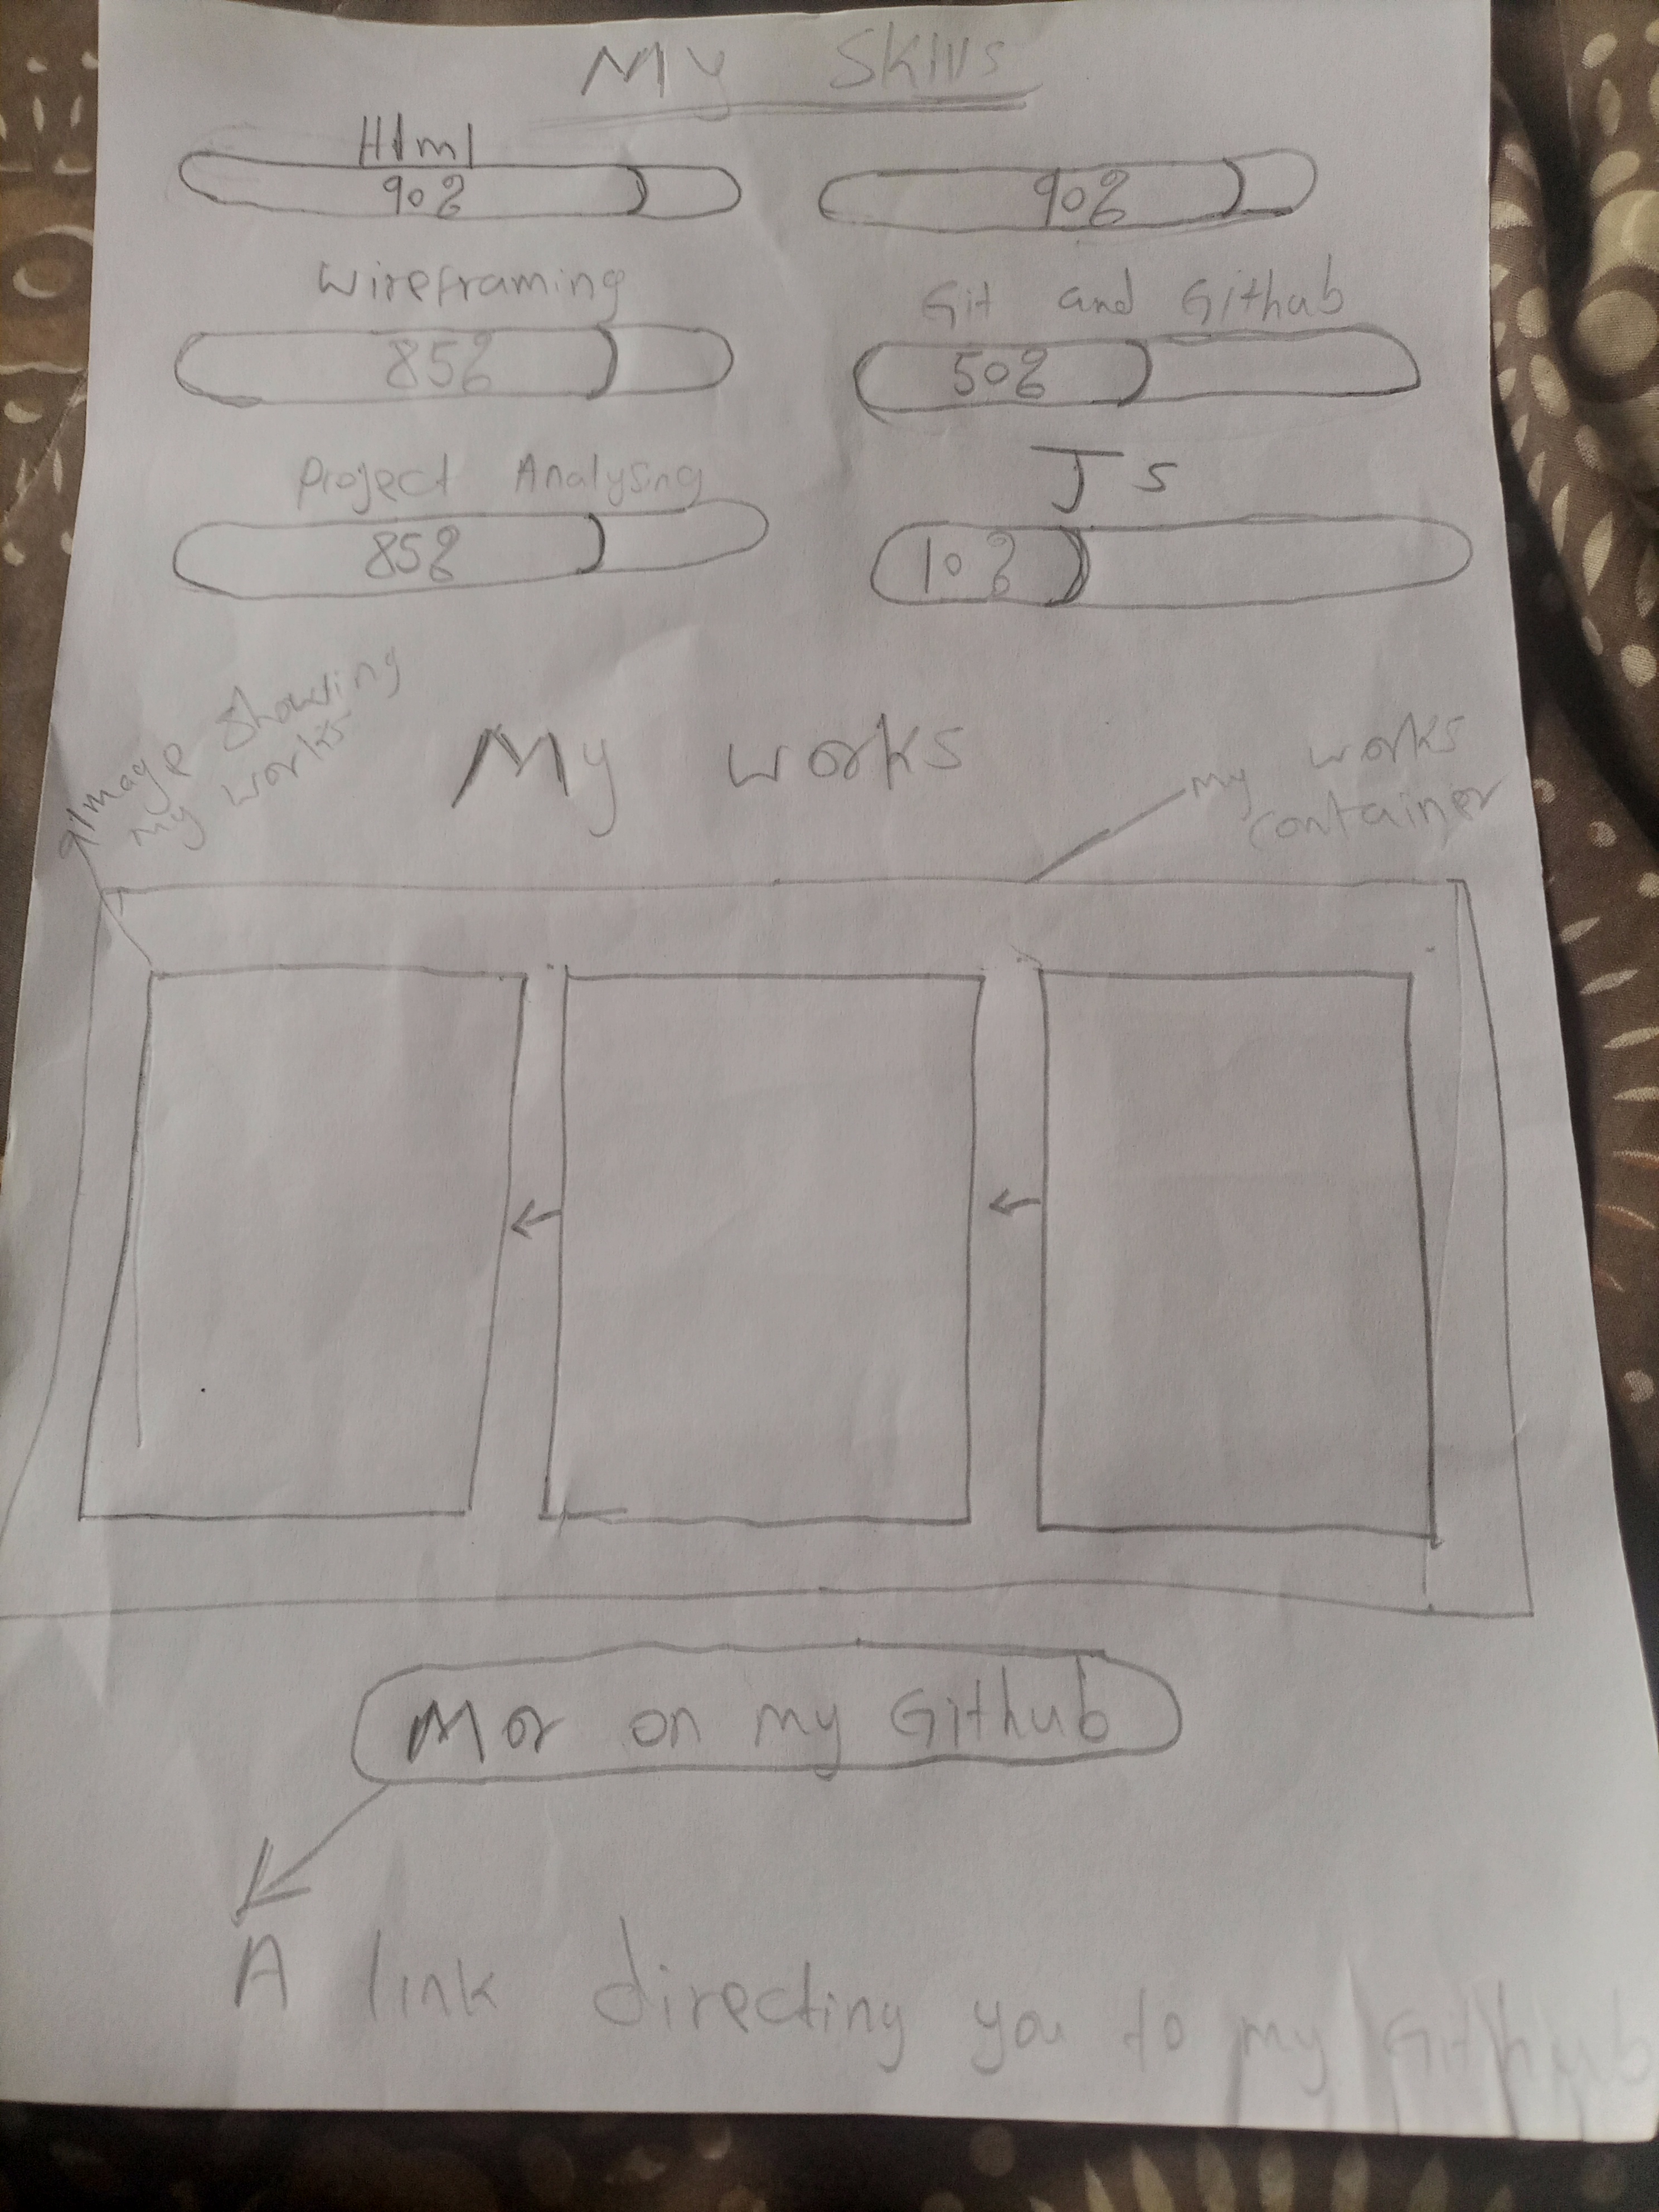 My Skills
Html
90% 90%
Wireframing Git and Github
85% 50%
Project Analysing Js
85% 10%
Image Showing
my works
My works
my works
container
Mor on my Github
A link directing you to my Github